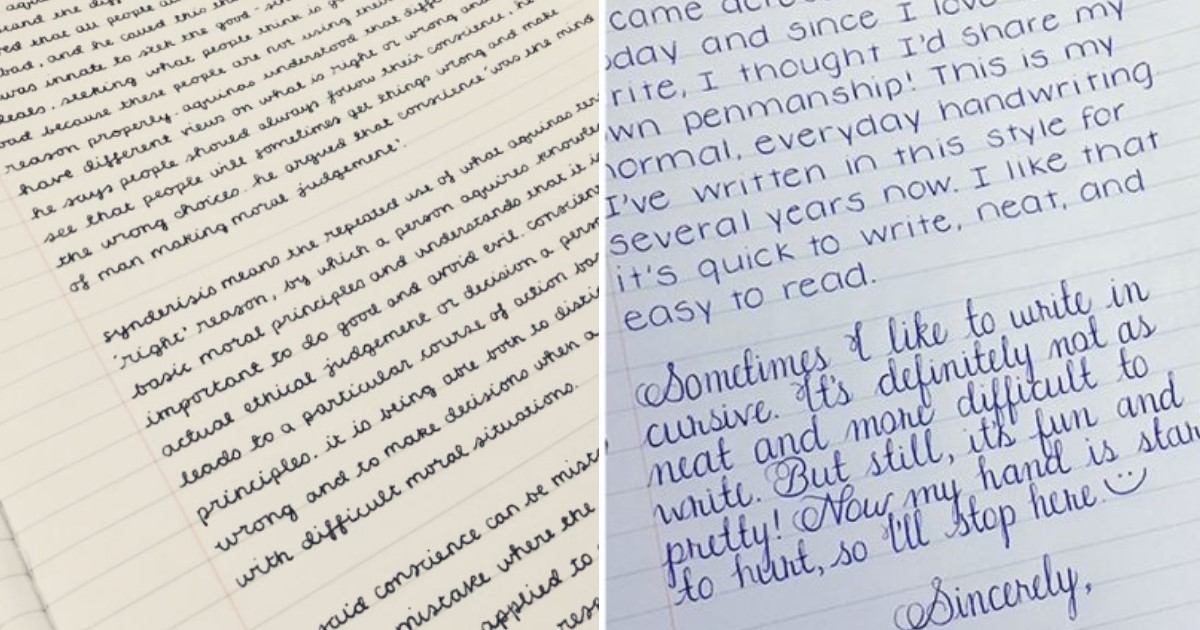 and the diff
that all people a
bad, and he called this th
was innate to seek the good - sin
ideals, seeking what people think is g
bad because these people are not using thei
reason properly. aquinas understood that diff
have different views on what is right or wrong an
he says people should always follow their conscience, he
see that people will sometimes get things wrong and make
the wrong choices. he argued that conscience 'was the mind
of man making moral judgement'.
synderisis means the repeated use of what aquinas ter
'right' reason, by which a person aquires knowle
basic moral principles and understands that it is
important to do good and avoid evil. conscien
actual ethical judgement or decision a pers
leads to a particular course of action ba
principles. it is being able both to disti
wrong and to make decisions when a
with difficult moral situations.
said conscience can be mist
mistake where the
applied to
resp
came acro
day and since I love
rite, I thought I'd share my
wn penmanship! This is my
normal, everyday handwriting
I've written in this style for
several years now. I like that
it's quick to write, neat, and
easy to read.
Sometimes I like to write in
cursive. It's definitely not as
neat and more difficult to
write. But still, it's fun and
pretty! Now my hand is star
to hurt, so I'll stop here.
Sincerely,